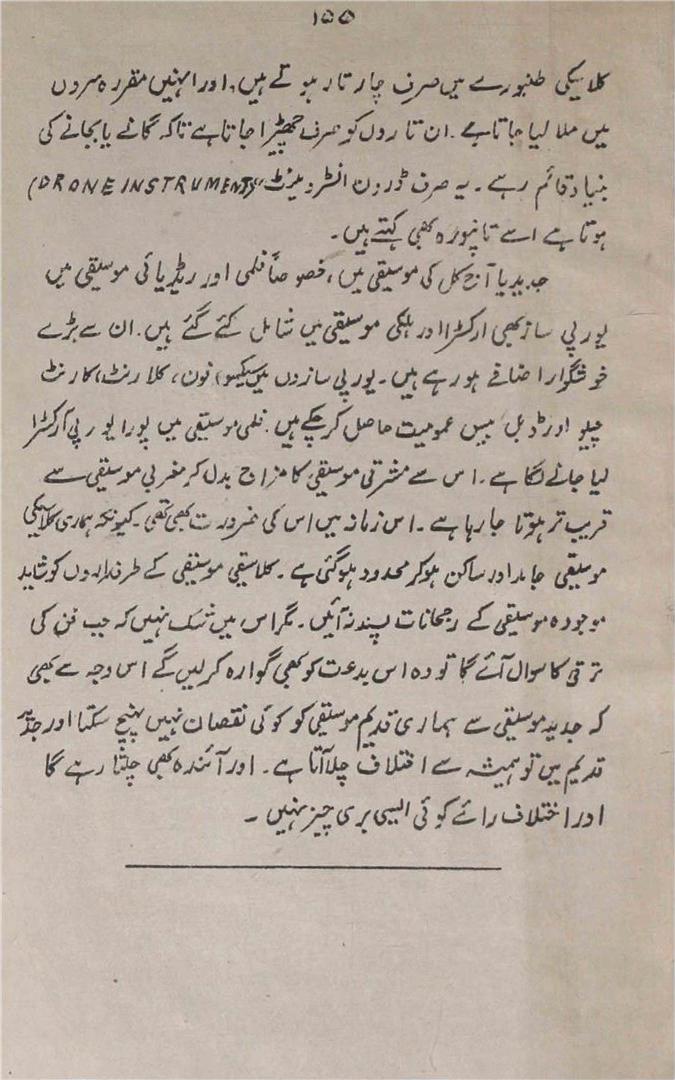 ۱۵۵
کلاسیکی طنبورے میں صرف چار تار ہوتے ہیں، اور انہیں مقررہ سروں
میں ملا لیا جاتا ہے۔ ان تاروں کو صرف چھیڑا جاتا ہے تاکہ گانے یا بجانے کی
بنیاد قائم رہے۔ یہ صرف ڈرون انسٹرومینٹ (DRONE INSTRUMENT)
ہوتا ہے اسے تانپورہ بھی کہتے ہیں۔
جدید یا آج کل کی موسیقی میں، خصوصاً فلمی اور ریڈیائی موسیقی میں
یورپی ساز بھی ارکسٹرا اور ہلکی موسیقی میں شامل کئے گئے ہیں۔ ان سے بڑے
خوشگوار اضافے ہو رہے ہیں۔ یورپی سازوں میں سیکسو فون، کلارنٹ، کارنٹ
چیلو اور ڈبل بیس عمومیت حاصل کر چکے ہیں۔ فلمی موسیقی میں پورا یورپی آرکسٹرا
لیا جانے لگا ہے۔ اس سے مشرقی موسیقی کا مزاج بدل کر مغربی موسیقی سے
قریب تر ہوتا جا رہا ہے۔ اس زمانہ میں اس کی ضرورت بھی تھی۔ کیونکہ ہماری کلاسیکی
موسیقی جامد اور ساکن ہوکر محدود ہو گئی ہے۔ کلاسیقی موسیقی کے طرفداروں کو شاید
موجودہ موسیقی کے رجحانات پسند نہ آئیں۔ مگر اس میں شک نہیں کہ جب فن کی
ترقی کا سوال آئے گا تو وہ اس بدعت کو بھی گوارہ کر لیں گے اس وجہ سے بھی
کہ جدید موسیقی سے ہماری قدیم موسیقی کو کوئی نقصان نہیں پہنچ سکتا اور جدید
قدیم میں تو ہمیشہ سے اختلاف چلا آتا ہے۔ اور آئندہ بھی چلتا رہے گا
اور اختلاف رائے کوئی ایسی بری چیز نہیں۔